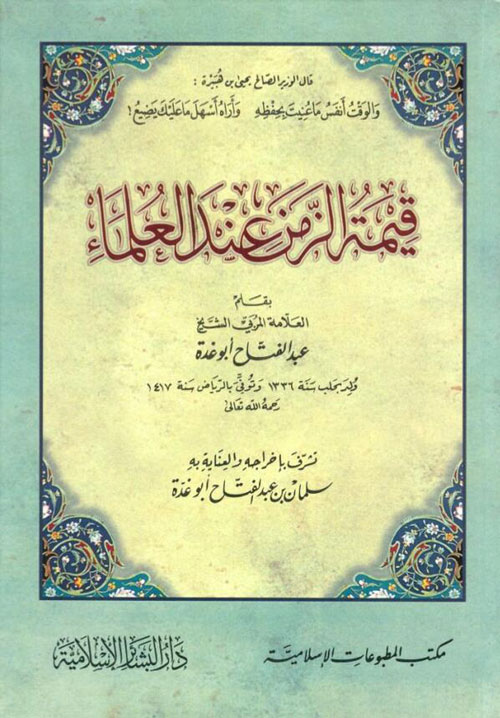 قال الوزير الصالح يحيى بن هُبَيْرة :
وَالوَقْتُ أَنْفَسُ مَا عُنِيتَ بِحِفْظِهِ وَأَرَاهُ أَسْهَلَ مَا عَلَيْكَ يَضِيعُ !
قِيمَةُ الزَّمَنِ عِنْدَ العُلَمَاءِ
بقلم
العلّامة المربّي الشيخ
عبد الفتاح أبو غدة
وُلِد بحلب سَنَة ١٣٣٦ وتُوفّي بالرياض سَنة ١٤١٧
رحمه الله تعالى
تشرّف بإخراجه والعناية به
سلمان بن عبد الفتاح أبو غدّة
مكتب المطبوعات الإسلاميّة
دَارُ البَشَائِرِ الإِسْلَامِيَّة